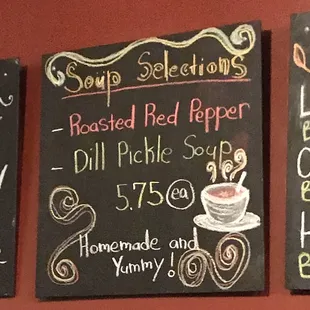 Soup Selections
- Roasted Red Pepper
- Dill Pickle Soup
5.75 ea
Homemade and
Yummy!